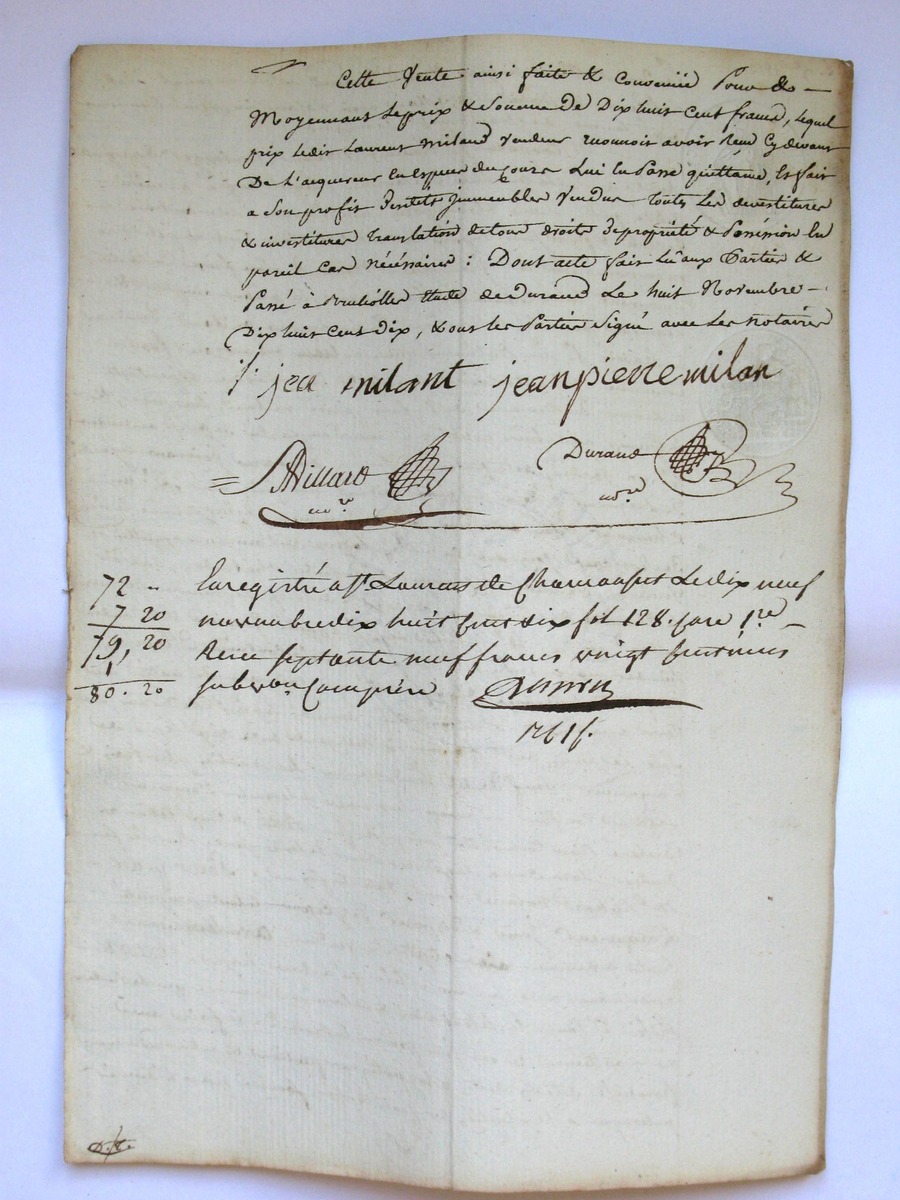 Cette Vente ainsi faite & Convenüe Pour &
Moyennant Le prix & Somme De Dix huit Cent francs, lequel
prix Ledit Laurent Miland Vendeur reconnoit avoir Reçu Cy devant
De L'acquereur En Espece du Cours Lui En Passe quittance, Et fait
a Son profit Desdits immeubles Vendus Toutes Les devestitures
& investitures Translation de tous droits de propriété & Possession En
pareil Cas Nécéssaires : Dont acte fait Lû aux Parties &
Passé à Etude de Durand Le huit Novembre
Dix huit Cent Dix, & ont les Parties Signé avec Les Notaires
milant jean pierre milan
Billard Durand
nore nore
72 " Enregistré a St Laurent de Le dix neuf
7 20 novembre dix huit Cent dix fol 128. 1re
79, 20 Recu septante neuf francs vingt Centimes
1
80. 20 subvon Comprise
D.